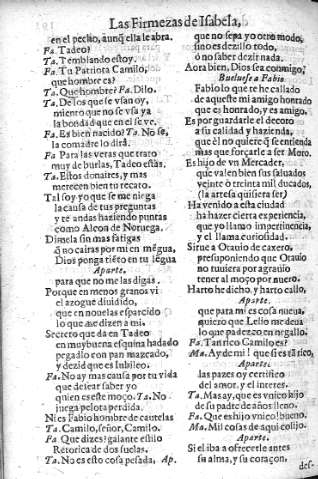 Las Firmezas de Isabela,
en el pecho, aunq̃ ella le abra.
Fa. Tadeo?
Ta. Temblando estoy.
Fa. Tu Patriota Camilo,
que hombre es?
Ta. Que hombre? Fa. Dilo.
Ta. De los que se vsan oy,
miento que no se vsa ya
la bondad que en el se ve.
Fa. Es bien nacido? Ta. No se,
la comadre lo dirà.
Fa. Para las veras que trato
muy de burlas, Tadeo estàs.
Ta. Estos donaires, y mas
merecen bien tu recato.
Tal soy yo que se me niega
la causa de tus preguntas
y te andas haziendo puntas
como Alcon de Noruega.
Dimela sin mas fatigas
ò no cairas por mi en mẽgua,
Dios ponga tiẽto en tu lẽgua
Aparte.
para que no me las digas.
Porque en menos granos vi
el azogue diuidido,
que en nouelas esparcido
lo que a dezir a mi.
Secreto que da en Tadeo
en muy buena esquina ha dado
pegadlo con pan mazcado,
y dezid que es Iubileo.
Fa. No ay mas causa por tu vida
que desear saber yo
quien es este moço. Ta. No
juega pelota perdida.
Ni es Fabio hombre de cautelas
Ta. Camilo, señor, Camilo.
Fa Que dizes? galante estilo
Retorica de dos suelas.
Ta. No es esto cosa pesada, Ap.
que no sepa yo otro modo,
sino es dezillo todo,
ò no saber dezir nada.
Aora bien, Dios sea conmigo,
Buelvese a Fabio
Fabio lo que te he callado
de aqueste mi amigo honrado
que es honrado, y es amigo.
Es por guardarle el decoro
a su calidad y hazienda,
que èl no quiere q̃ se entienda
mas que forçarle a ser Moro.
Es hijo de vn Mercader,
que valen bien sus saluados
veinte ò treinta mil ducados,
(la artesa quisiera ser)
Ha venido a esta ciudad
ha hazer cierta experiencia,
que yo llamo impertinencia,
y el llama curiosidad.
Sirue a Otauio de caxero,
presuponiendo que Otauio
no tuuiera por agrauio
tener al moço por nuero.
Harto he dicho, y harto callo,
Aparte.
que para mi es cosa nueua,
quiero que Lelio me deua
lo que padezco en negallo.
Fa. Tan rico Camilo es?
Ma. Ay de mi! que si es tã rico,
Aparte.
las pazes oy certifico
del amor, y el interes.
Ta. Mas ay, que es vnico hijo
de su padre de años lleno.
Fa. Que es hijo vnico? bueno.
Ma. Mil cosas de aqui colijo.
Aparte.
Si el iba a ofrecerle antes
su alma, y su coraçon,
des-